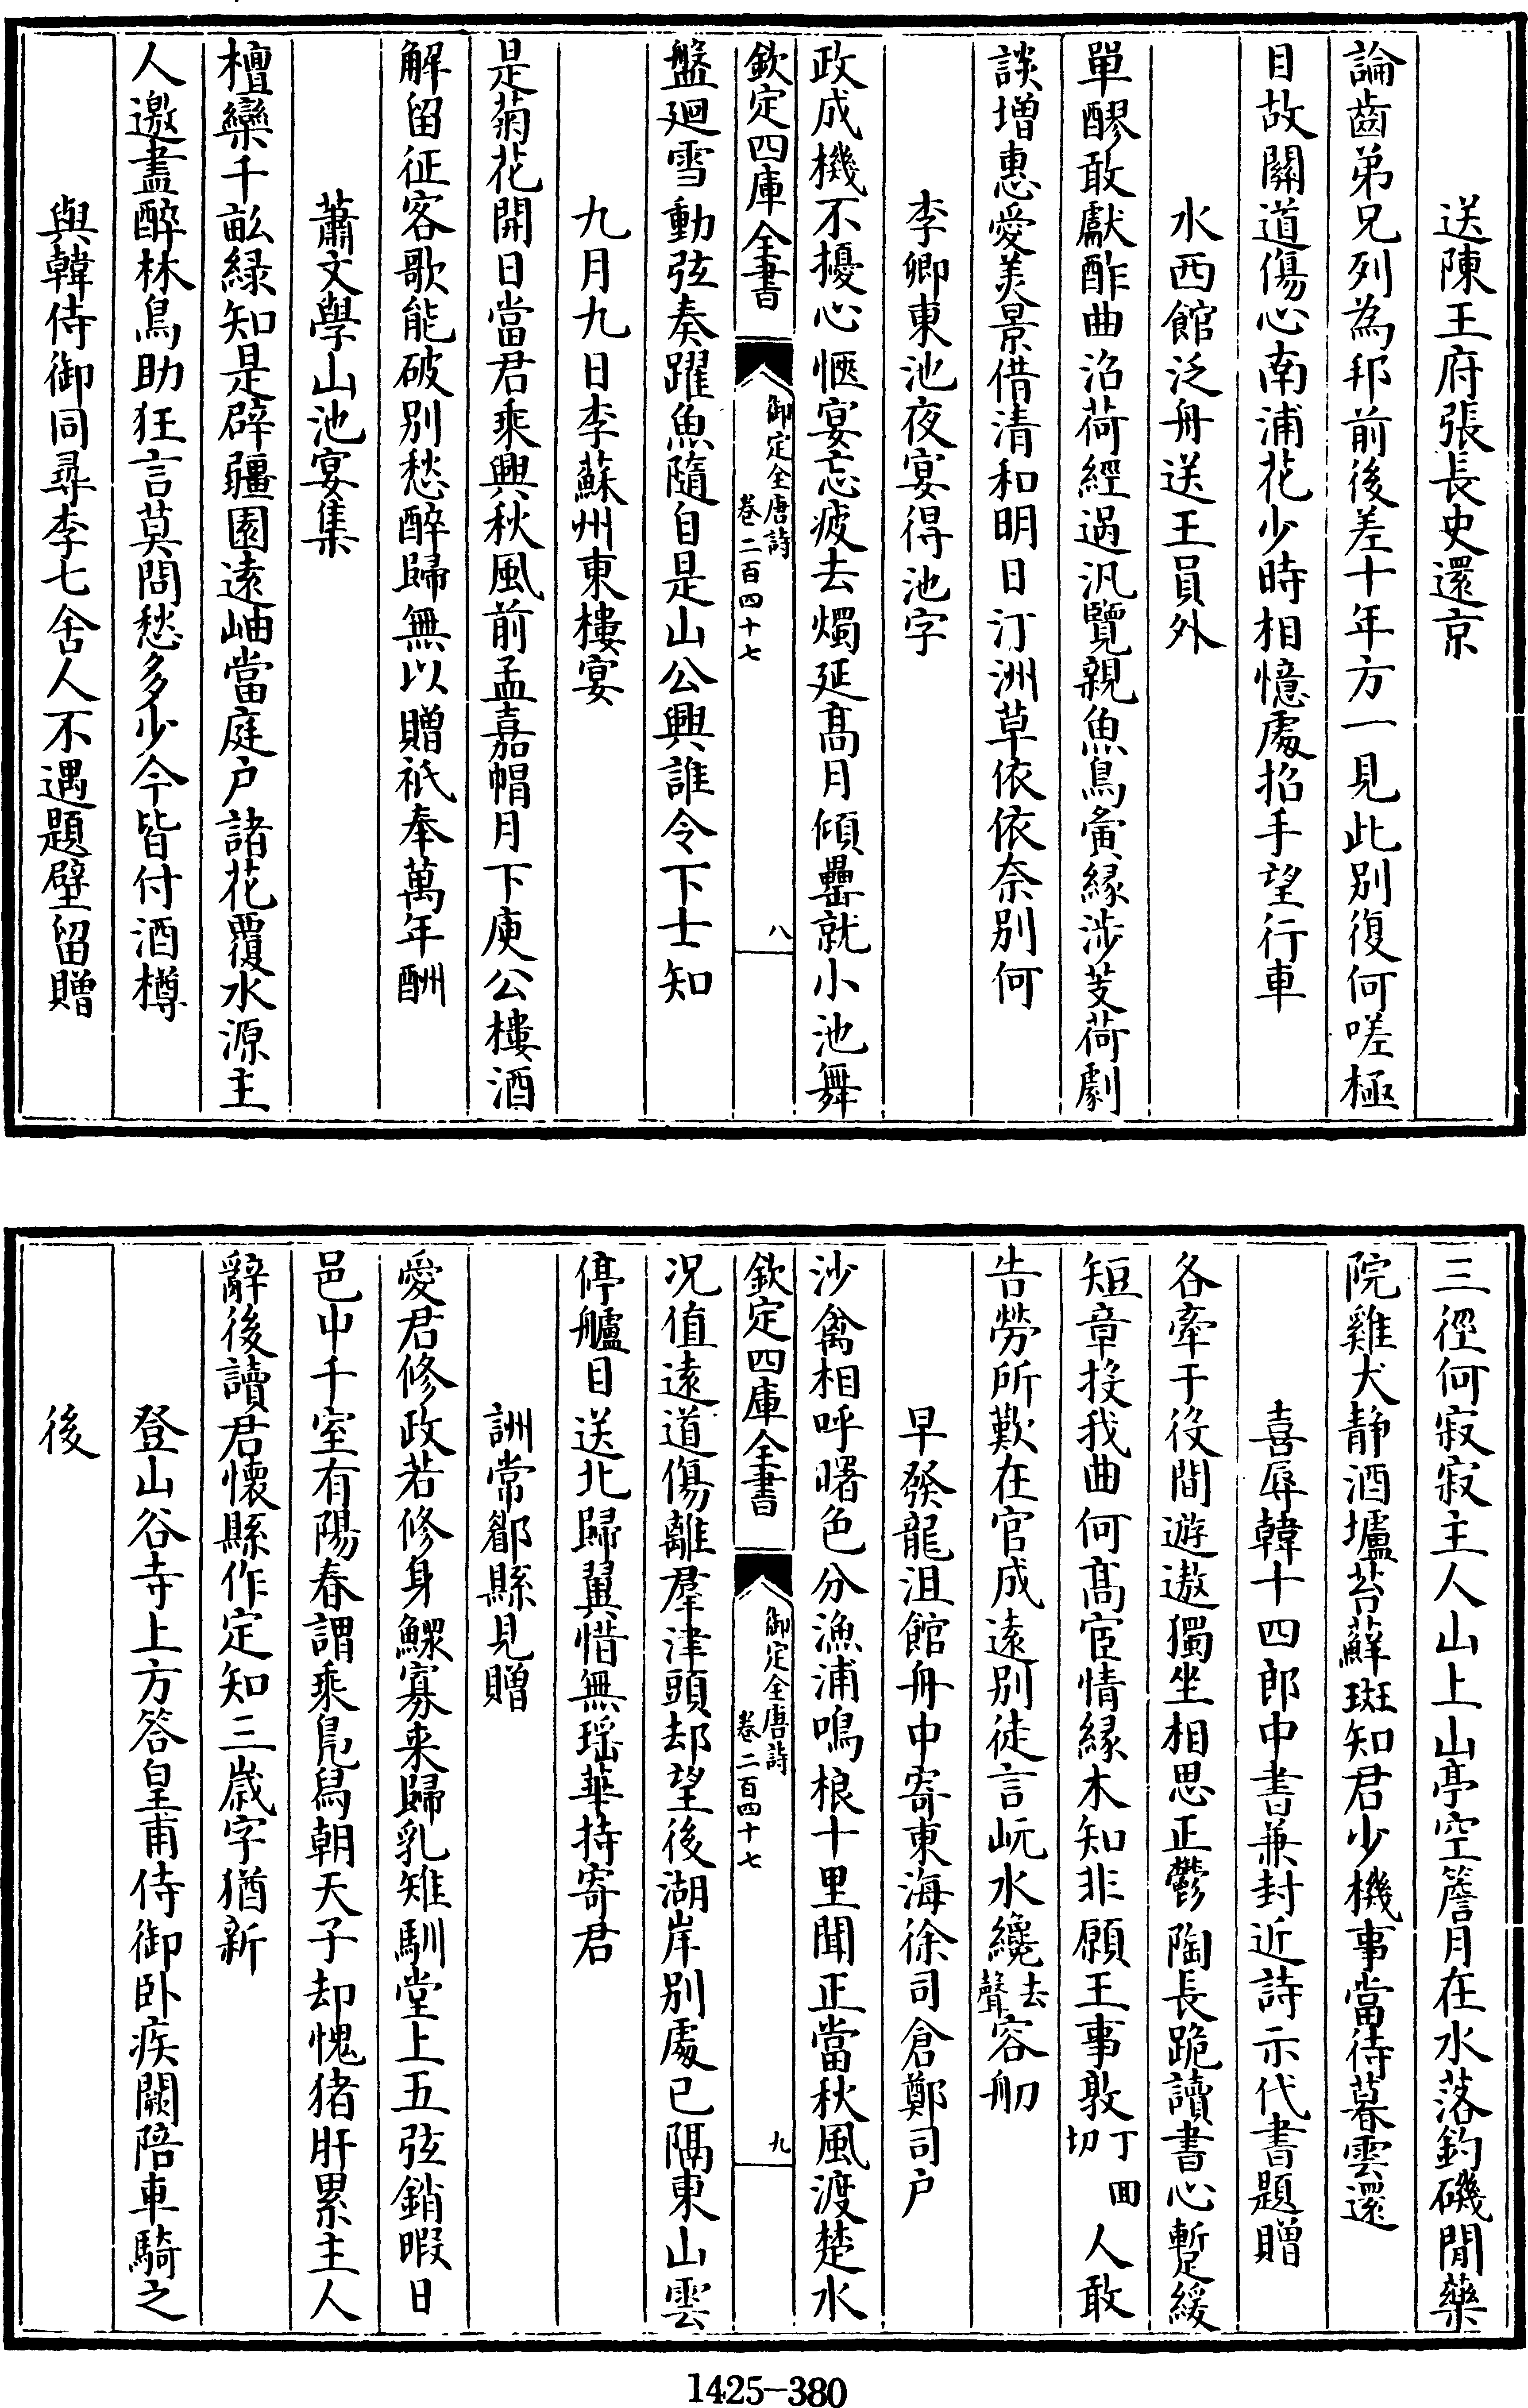 送陳王府張長史還京
論齒弟兄列為邦前後差十年方一見此别復何嗟極
目故關道傷心南浦花少時相憶處招手望行車
水西館泛舟送王員外
單醪敢獻酢曲沿荷經過汎覽親魚鳥夤緣涉芰荷劇
談增惠愛美景借清和明日汀洲草依依奈别何
李卿東池夜宴得池字
政成機不擾心愜宴忘疲去燭延髙月傾罍就小池舞
欽定四庫全書
御定全唐詩
卷二百四十七
八
盤廻雪動弦奏躍魚隨自是山公興誰令下士知
九月九日李蘇州東樓宴
是菊花開日當君乘興秋風前孟嘉帽月下庾公樓酒
解留征客歌能破别愁醉歸無以贈祇奉萬年酬
蕭文學山池宴集
檀欒千畝緑知是辟疆園遠岫當庭户諸花覆水源主
人邀盡醉林鳥助狂言莫問愁多少今皆付酒樽
與韓侍御同尋李七舍人不遇題壁留贈
三徑何寂寂主人山上山亭空簷月在水落釣磯閒藥
院雞犬静酒壚苔蘚斑知君少機事當待暮雲還
喜辱韓十四郎中書兼封近詩示代書題贈
各牽于役間遊遨獨坐相思正鬱陶長跪讀書心暫緩
短章投我曲何髙宦情緣木知非願王事敦丁回切人敢
告勞所歎在官成遠别徒言岏水纔去聲容舠
早發龍沮館舟中寄東海徐司倉鄭司户
沙禽相呼曙色分漁浦鳴桹十里聞正當秋風渡楚水
欽定四庫全書
御定全唐詩
卷二百四十七
九
况值遠道傷離羣津頭却望後湖岸别處已隔東山雲
停艫目送北歸翼惜無瑶華持寄君
詶常郿縣見贈
愛君修政若修身鰥寡来歸乳雉馴堂上五弦銷暇日
邑中千室有陽春謂乘鳬舄朝天子却愧猪肝累主人
辭後讀君懷縣作定知三嵗字猶新
登山谷寺上方答皇甫侍御卧疾闕陪車騎之
後
1425-380